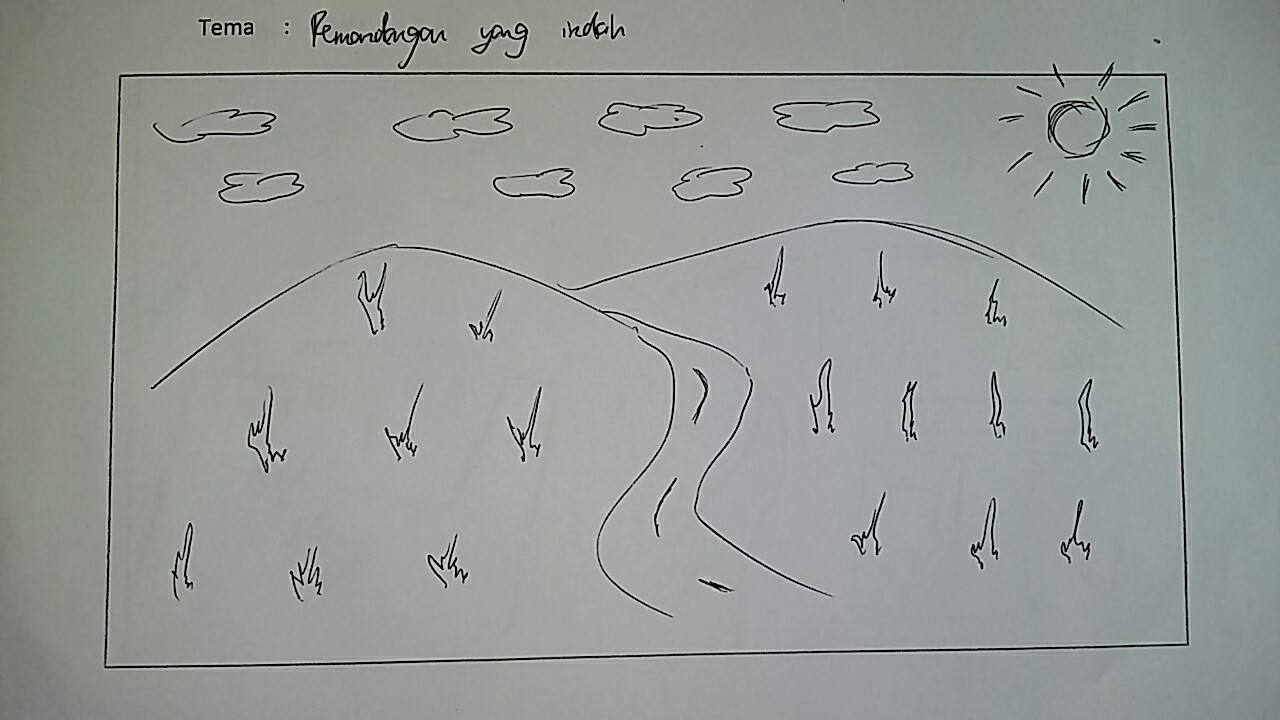 Tema : Pemandangan yang indah